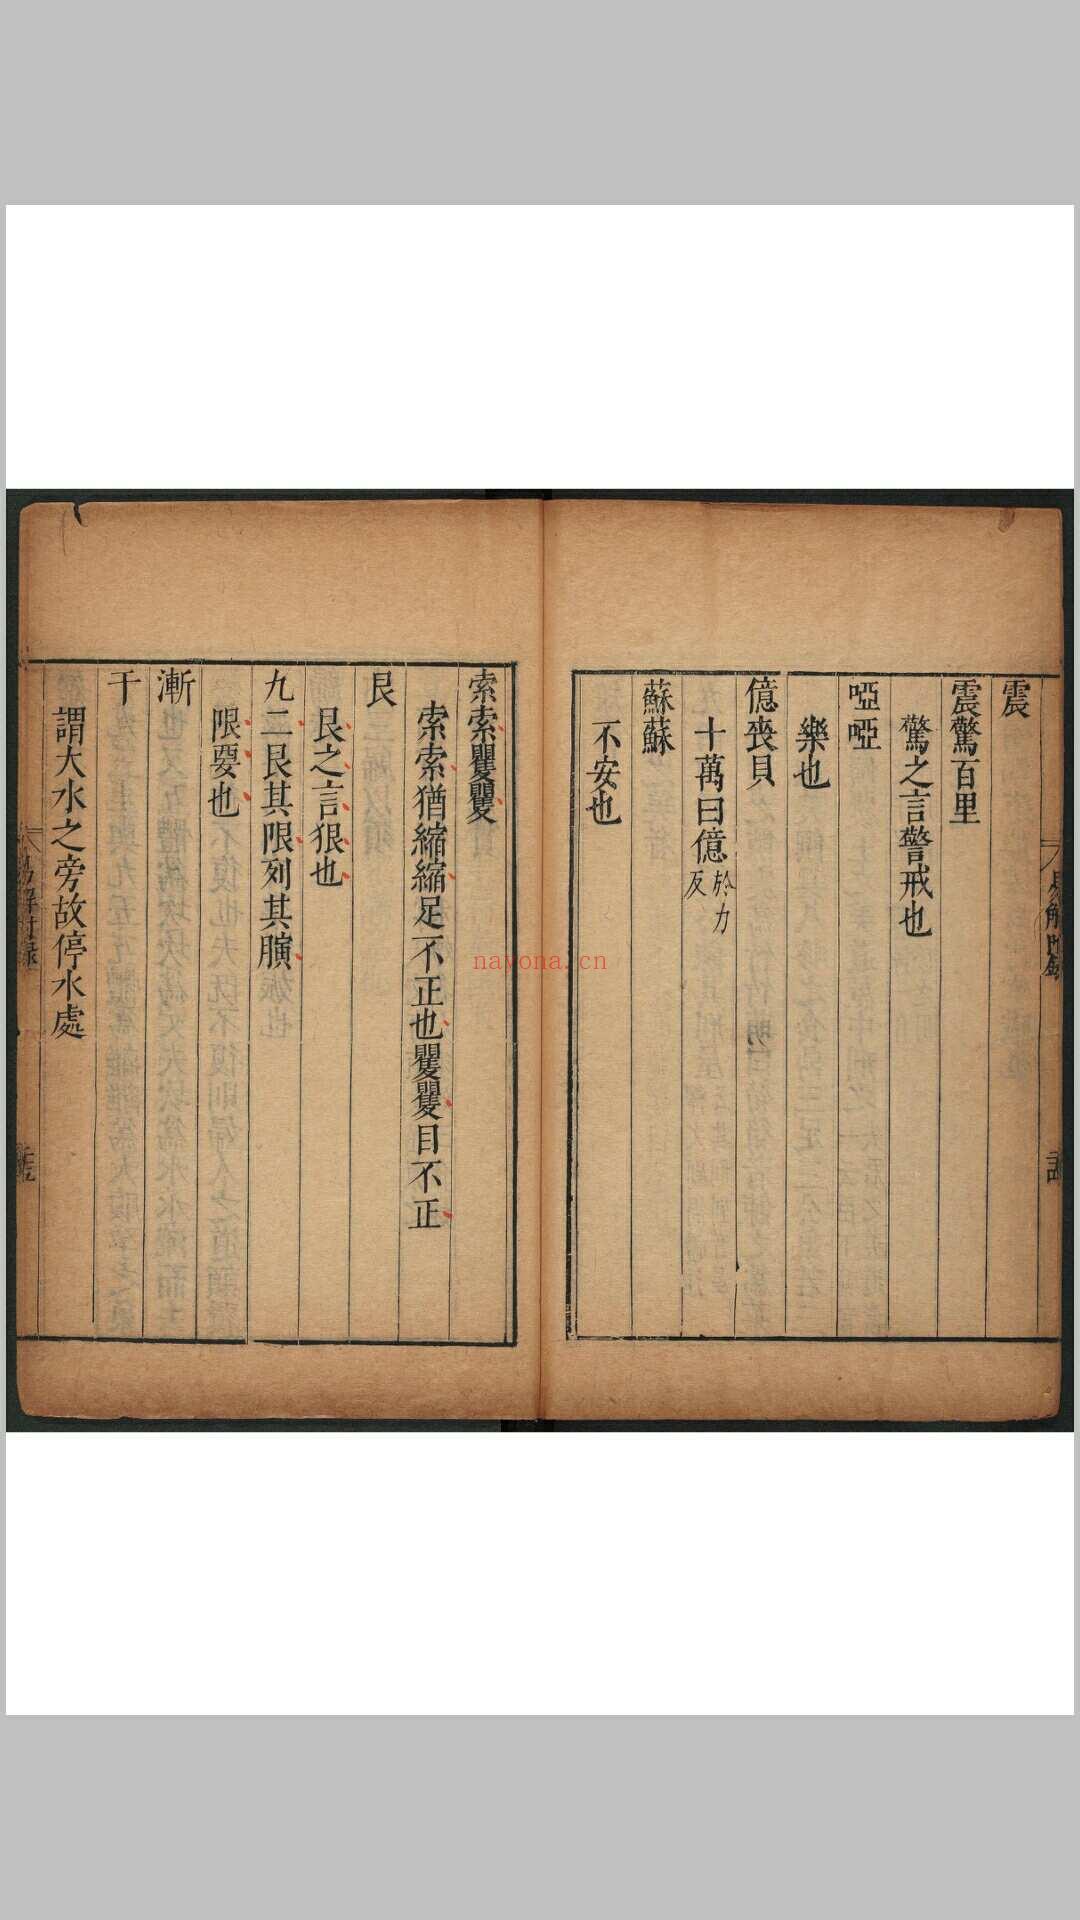 震
震驚百里
驚之言警戒也
啞啞
樂也
億喪貝
十萬曰億於力反
蘇蘇
不安也
索索矍矍
索索猶縮縮足不正也矍矍目不正
艮
艮之言狠也
九二艮其限列其䐡
限要也
漸
干
謂大水之旁故停水處
易解附錄
nayona.cn